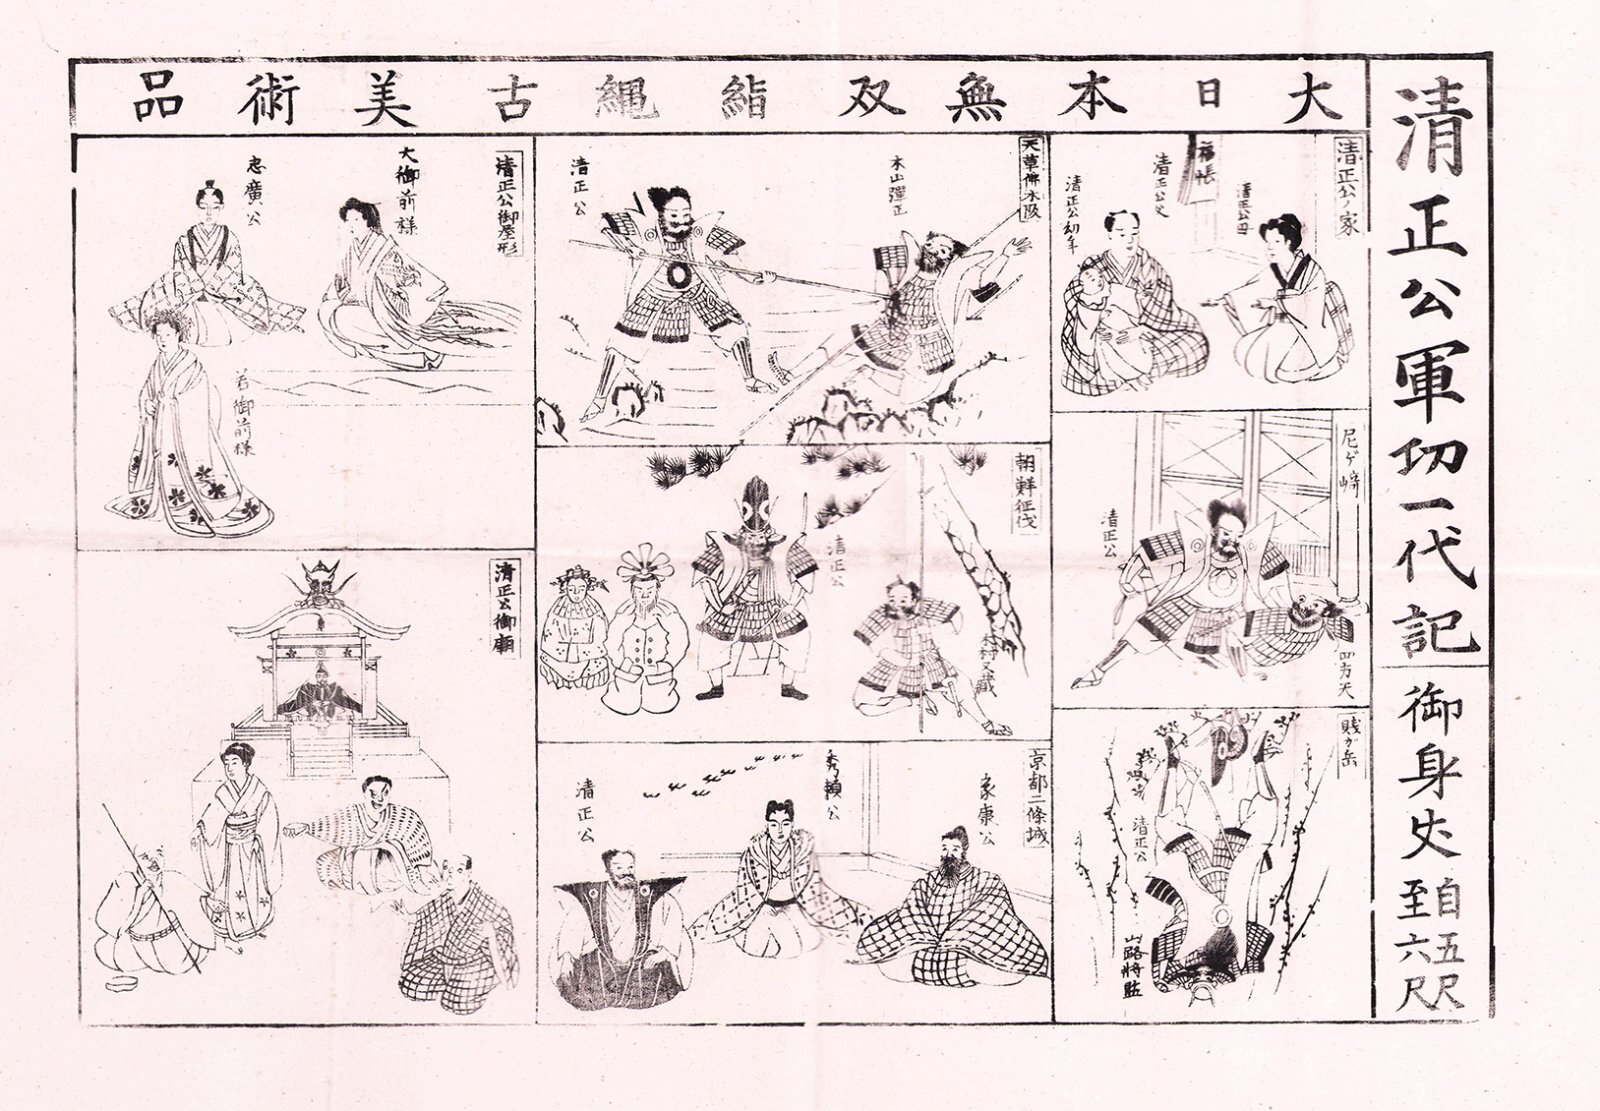 清正公軍功一代記
御身丈
自五尺
至六尺
大日本無双
縄古美術品
清正公ノ家
福帳
清正公母
清正公父
清正公幼年
尼ヶ崎
清正公
四方天
賤ヶ岳
清正公
山路將監
天草佛木坂
木山彈正
清正公
朝鮮征伐
清正公
木村又藏
京都二條城
家康公
秀頼公
清正公
清正公御屋形
大御前様
忠廣公
若御前様
清正公御廟